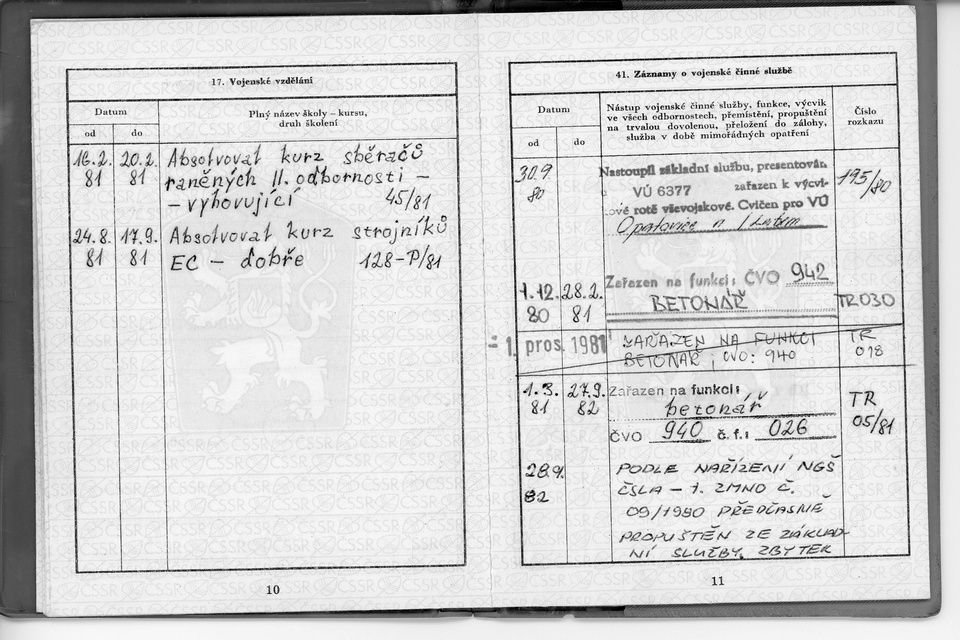 17. Vojenské vzdělání
Datum
od
do
Plný název školy – kursu,
druh školení
16.2. 20.2. Absolvoval kurz sběračů
81 81 raněných II. odbornosti –
– vyhovující 45/81
24.8. 17.9. Absolvoval kurz strojníků
81 81 EC – dobře 128-P/81
10
41. Záznamy o vojenské činné službě
Datum
od
do
Nástup vojenské činné služby, funkce, výcvik
ve všech odbornostech, přemístění, propuštění
na trvalou dovolenou, přeložení do zálohy,
služba v době mimořádných opatření
Číslo
rozkazu
30.9. Nastoupil základní službu, presentován
80 VÚ 6377 zařazen k výcvi- 195/80
ové rotě vševojskové. Cvičen pro VÚ
Opatovice n. / Labem
Zařazen na funkci: ČVO 942
1.12. 28.2. BETONÁŘ TR030
80 81
1. pros. 1981 ZAŘAZEN NA FUNKCI TR
BETONÁŘ; ČVO: 940 018
1.3. 27.9. Zařazen na funkci:
81 82 betonář TR
ČVO 940 č.f.: 026 05/81
28.9. PODLE NAŘÍZENÍ NGŠ
82 ČSLA – 1. ZMNO Č.
09/1980 PŘEDČASNĚ
PROPUŠTĚN ZE ZÁKLAD-
NÍ SLUŽBY, ZBYTEK
11